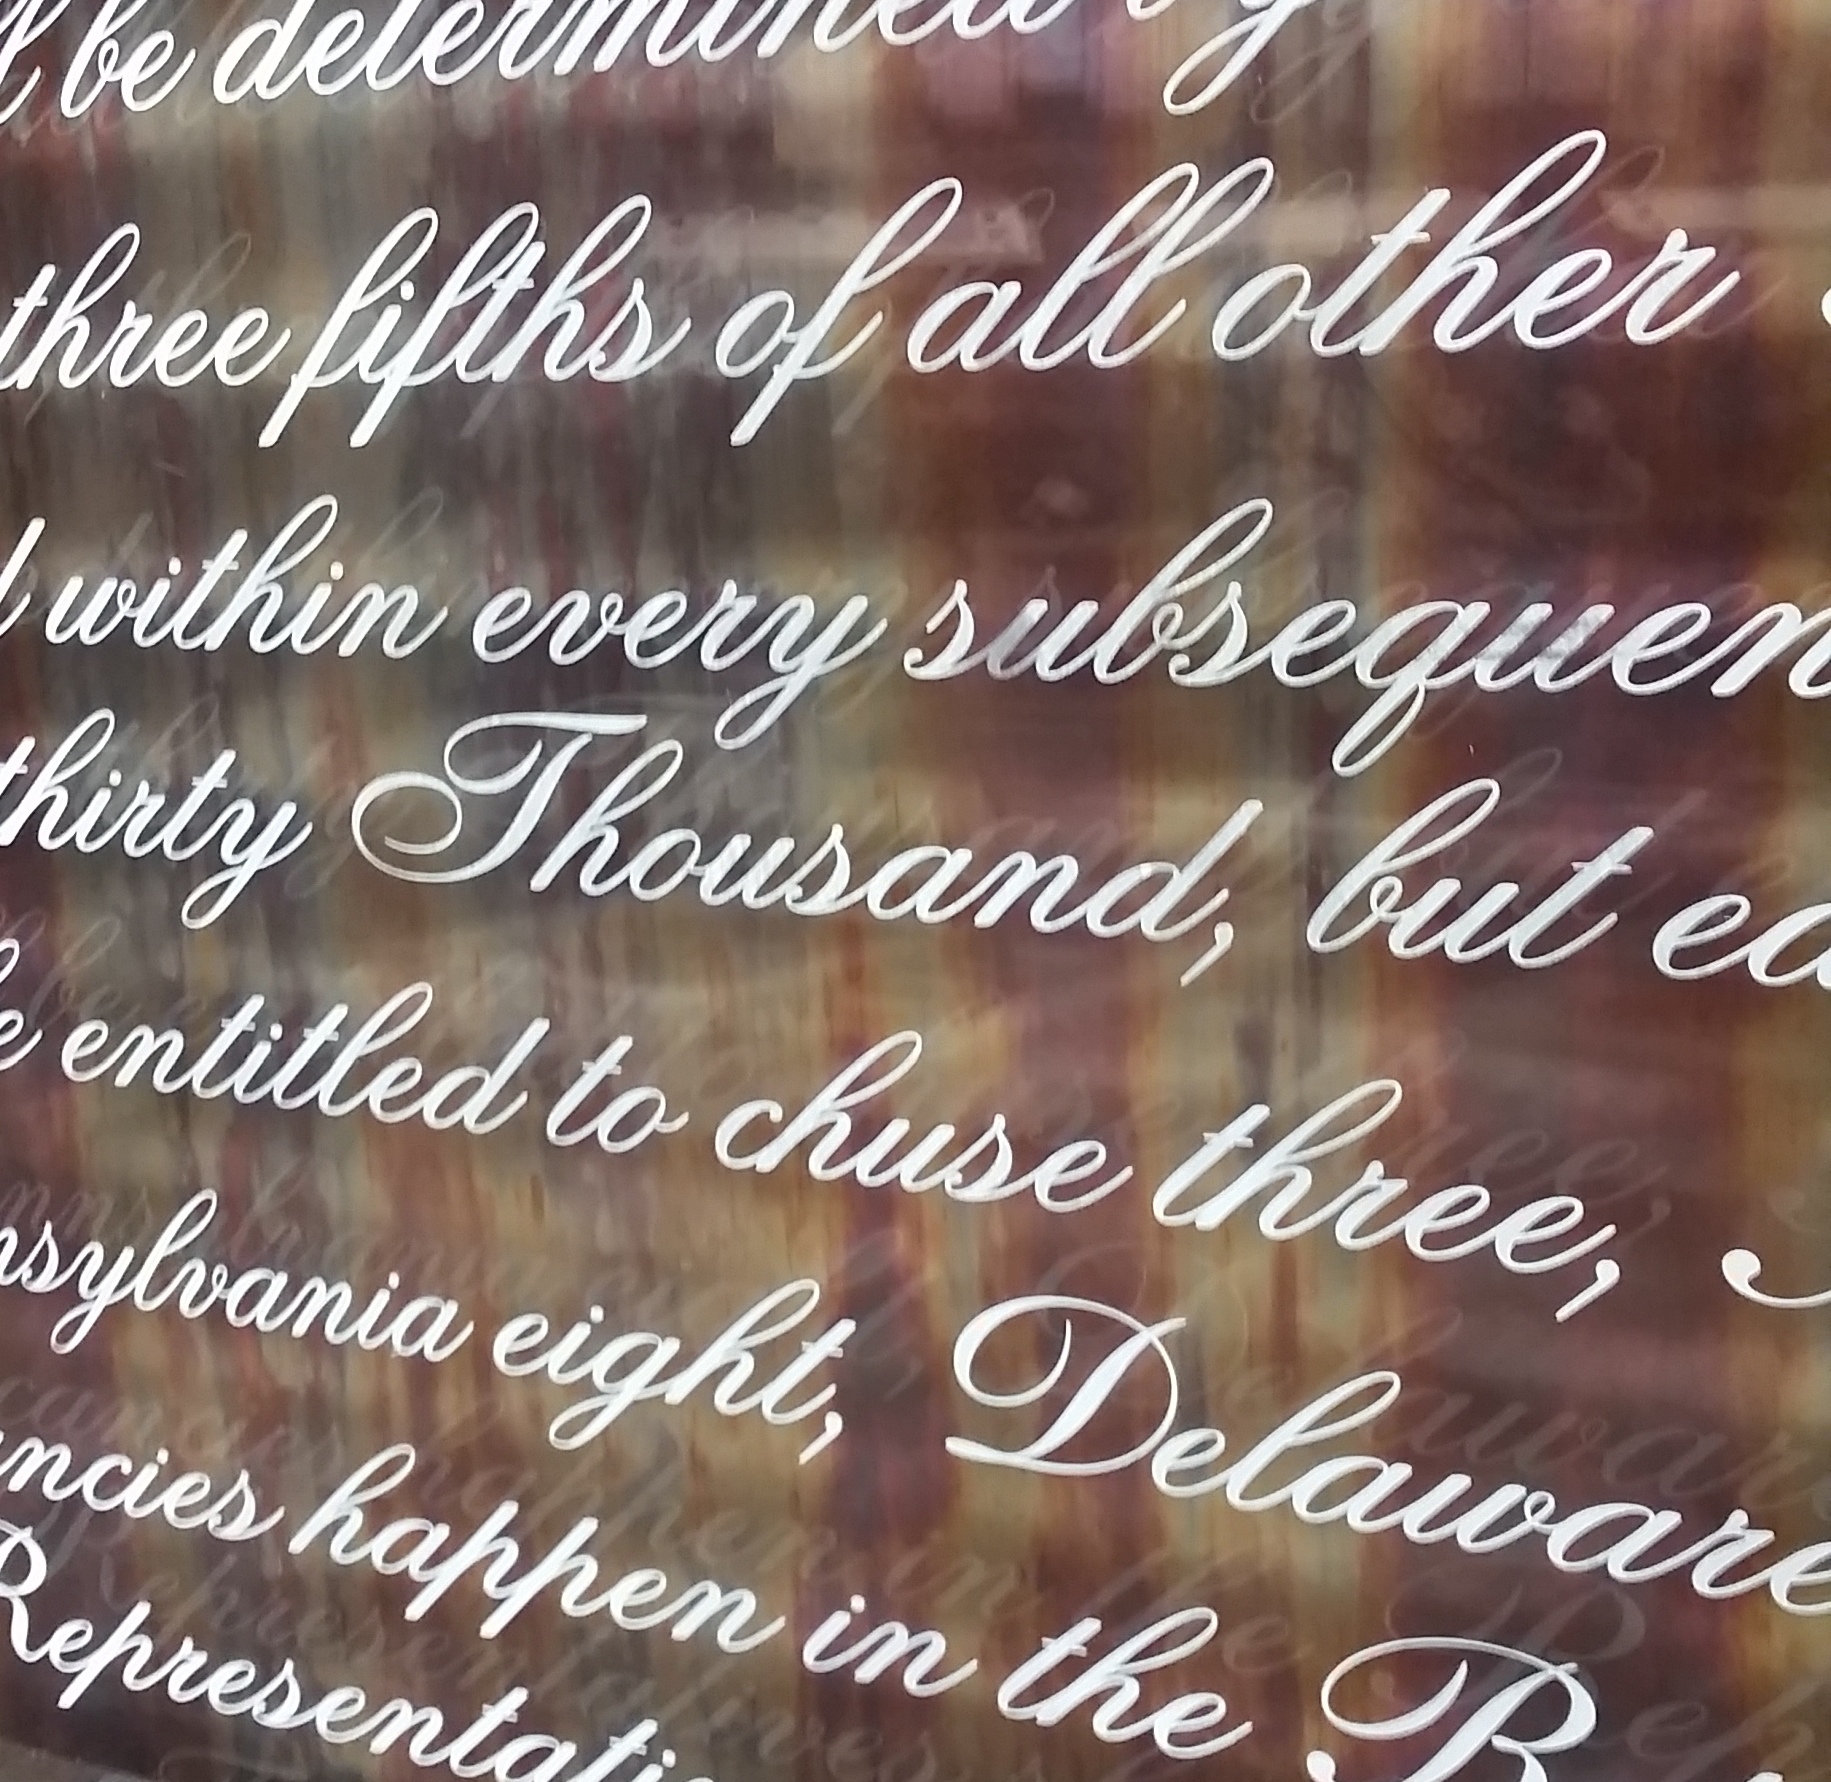 be determined
three fifths of all other
within every subsequen
thirty Thousand, but ea
entitled to chuse three,
nsylvania eight, Delaware
ncies happen in the R
Representati